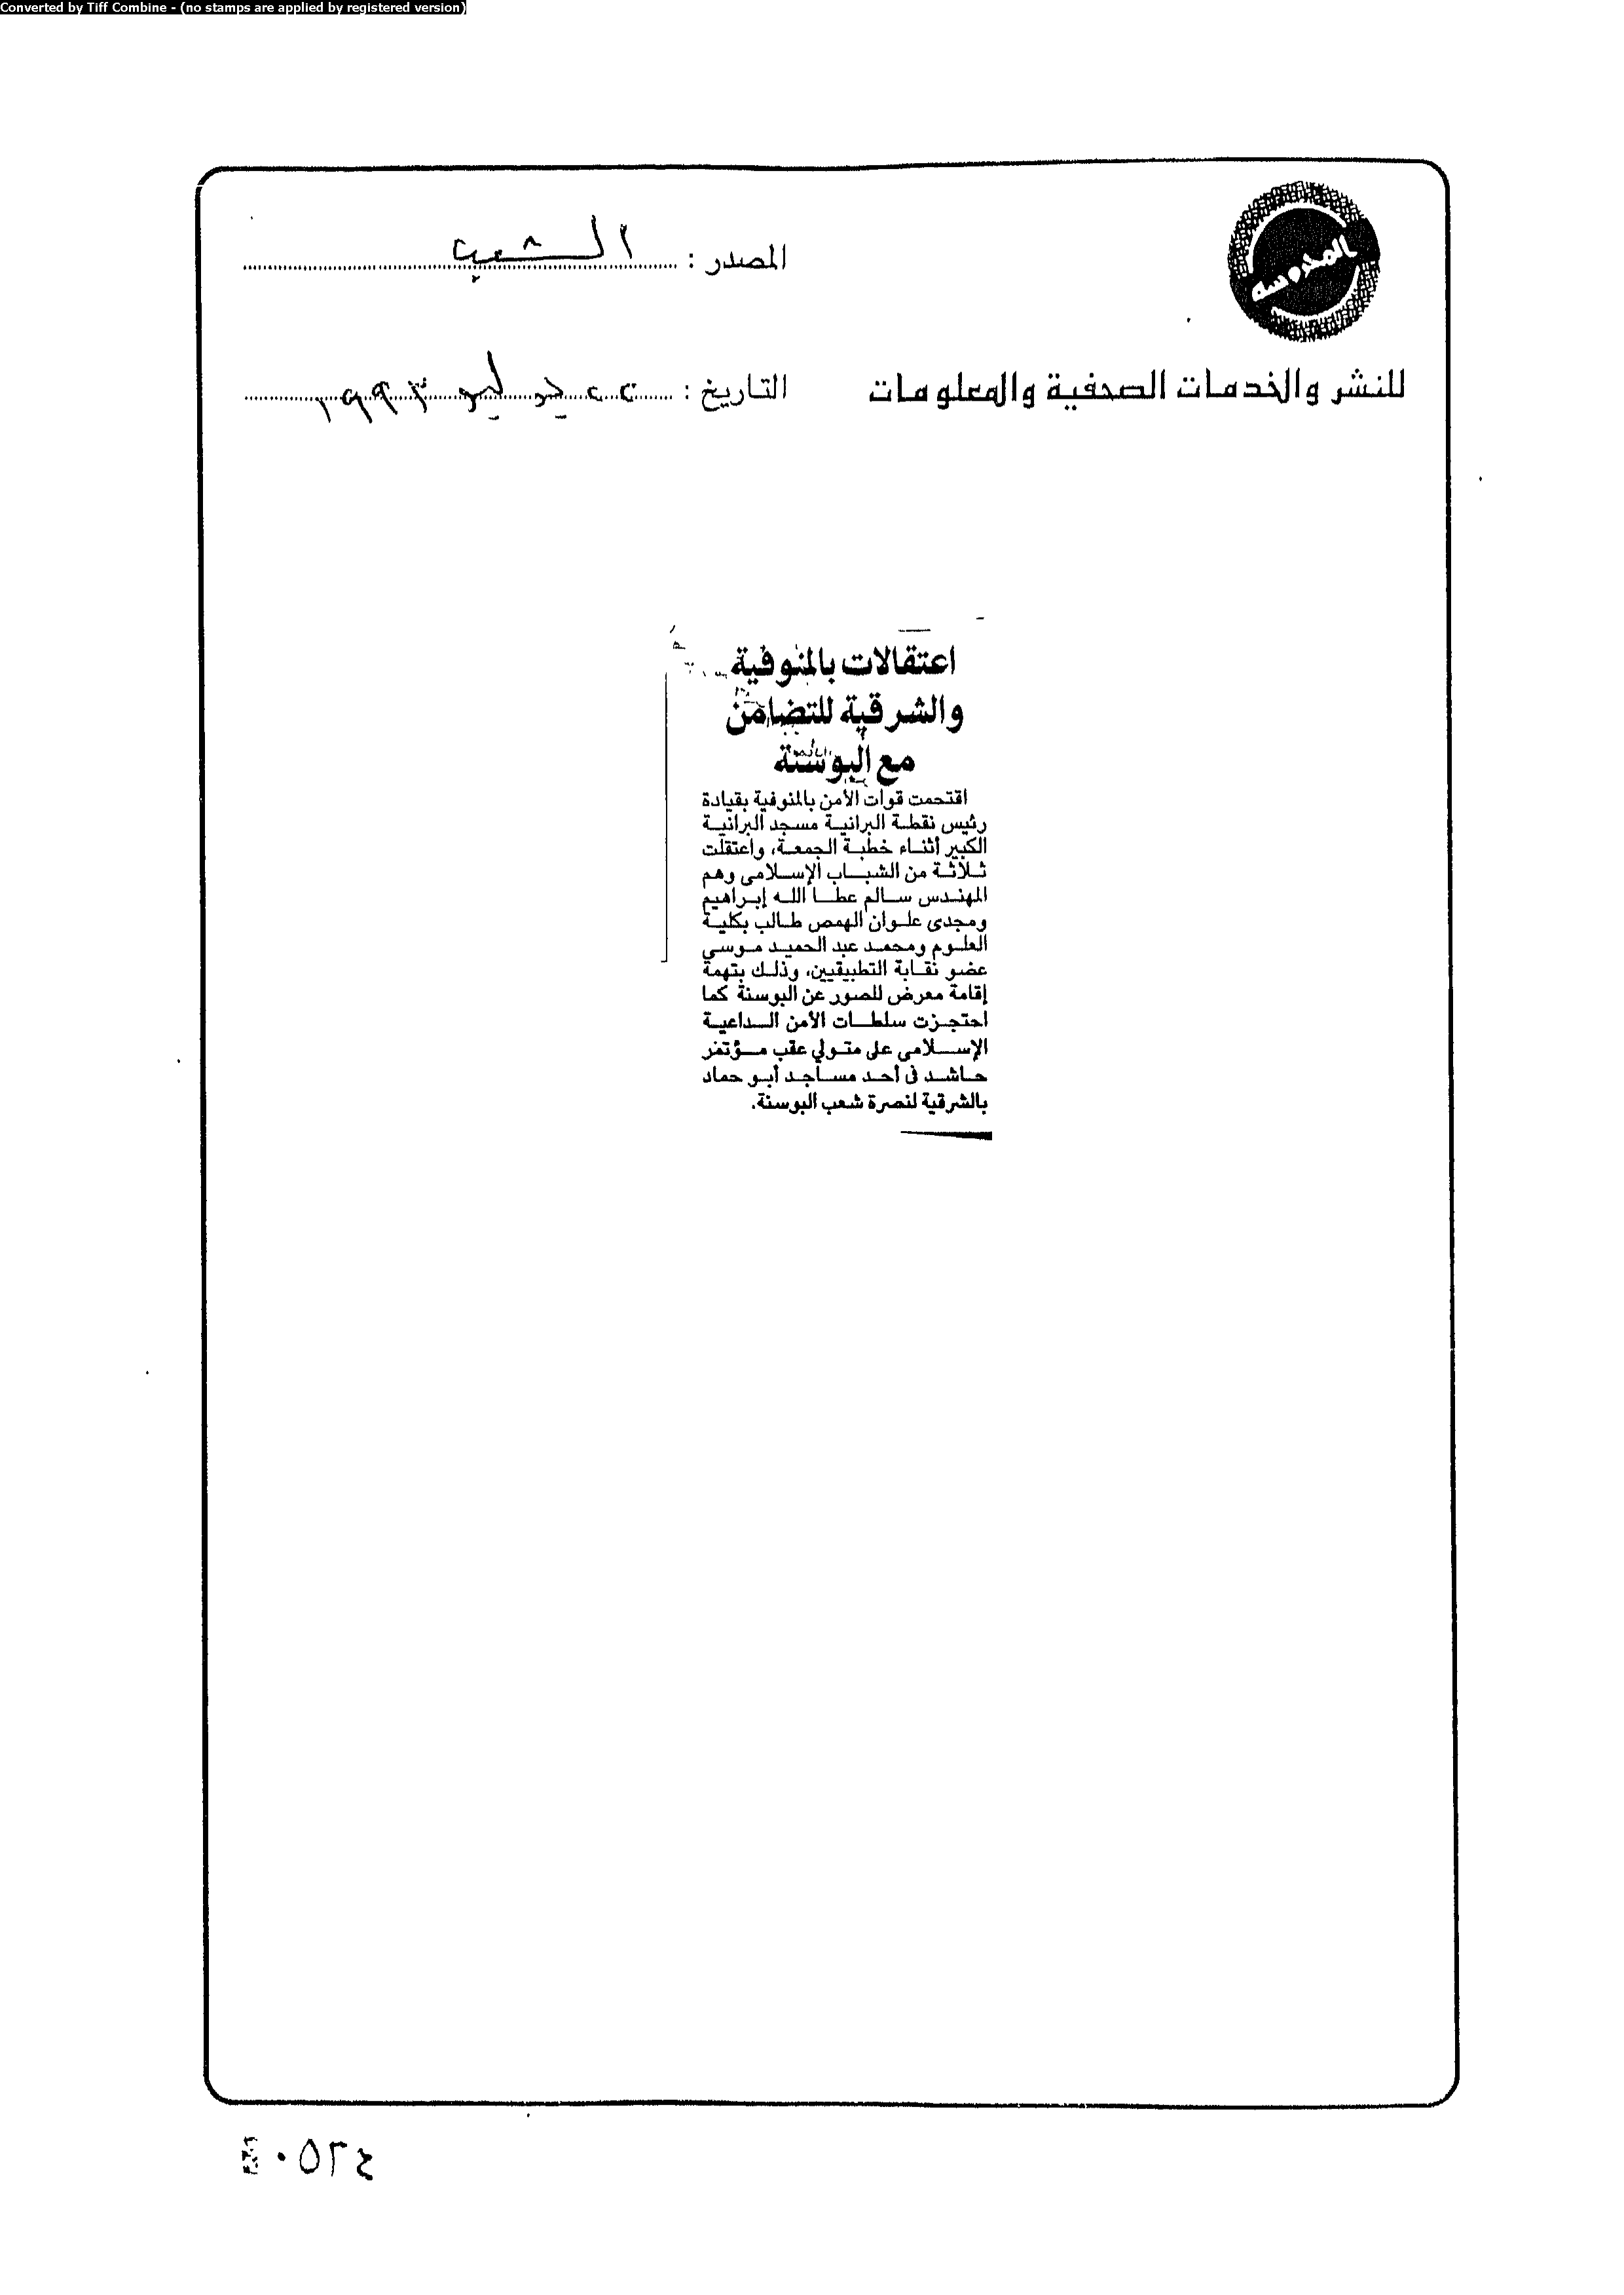 Converted by Tiff Combine - (no stamps are applied by registered version)
المدوسة
للنشر والخدمات الصحفية والمعلومات
المصدر : الشعب
التاريخ : ٢٢ يوليو ١٩٩٣
اعتقالات بالمنوفية
والشرقية للتضامن
مع البوسنة
اقتحمت قوات الأمن بالمنوفية بقيادة
رئيس نقطة البرانية مسجد البرانية
الكبير أثناء خطبة الجمعة، واعتقلت
ثلاثة من الشباب الإسلامى وهم
المهندس سالم عطا الله إبراهيم
ومجدى علوان الهمص طالب بكلية
العلوم ومحمد عبد الحميد موسى
عضو نقابة التطبيقيين، وذلك بتهمة
إقامة معرض للصور عن البوسنة كما
احتجزت سلطات الأمن الداعية
الإسلامى على متولي عقب مؤتمر
حاشد فى أحد مساجد أبو حماد
بالشرقية لنصرة شعب البوسنة.